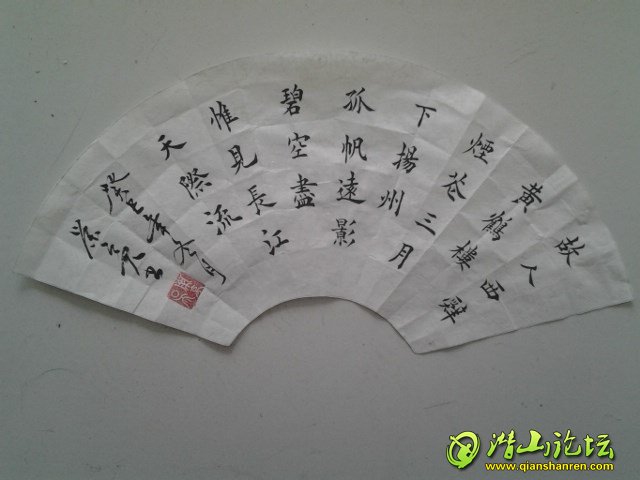 故人西辭
黃鶴樓
煙花三月
下揚州
孤帆遠影
碧空盡
惟見長江
天際流
癸巳年冬月
潜山论坛
www.qianshanren.com